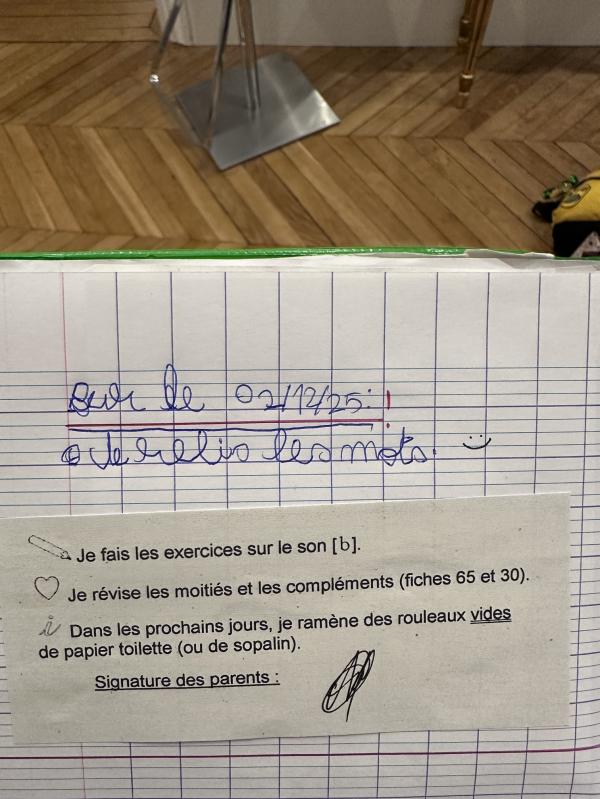 Pour le 02/12/25: !
Je relis les mots.
Je fais les exercices sur le son [b].
Je révise les moitiés et les compléments (fiches 65 et 30).
Dans les prochains jours, je ramène des rouleaux vides
de papier toilette (ou de sopalin).
Signature des parents :